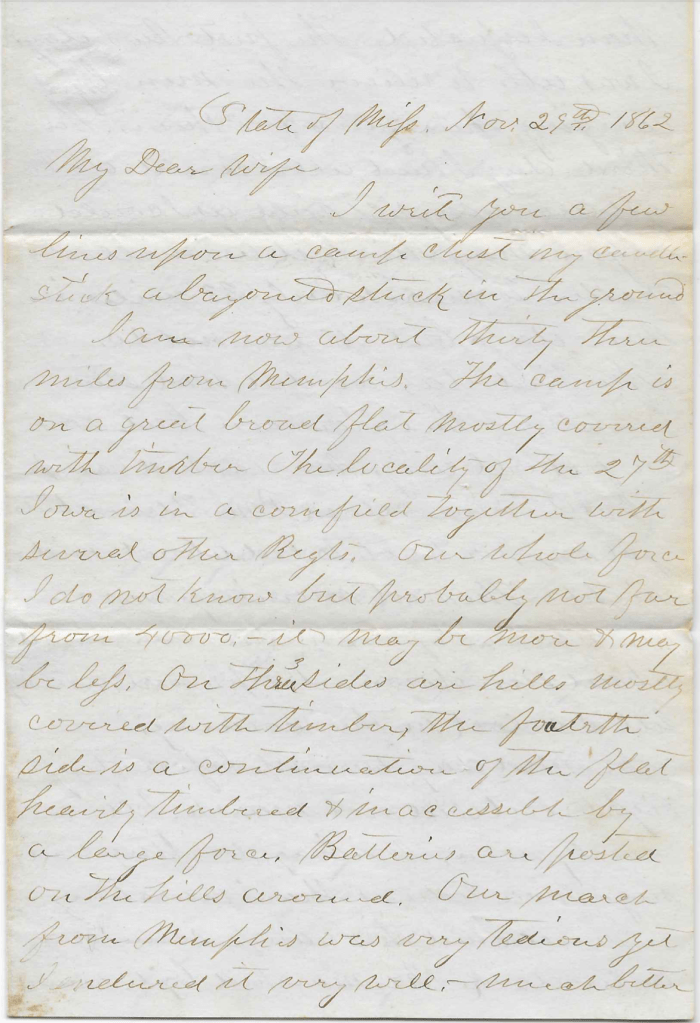 State of Miss. Nov. 29th. 1862
My Dear Wife
I write you a few
lines upon a camp chest my candle-
stick a bayonet stuck in the ground
I am now about thirty three
miles from Memphis. The camp is
on a great broad flat mostly covered
with timber The locality of the 27th
Iowa is in a cornfield together with
several other Regts. Our whole force
I do not know but probably not far
from 40000,- it may be more & may
be less. On three 3 sides are hills mostly
covered with timber, the fourth
side is a continuation of the flat
heavily timbered & inaccessible by
a large force. Batteries are posted
on the hills around. Our march
from Memphis was very tedious yet
I endured it very well,- much better